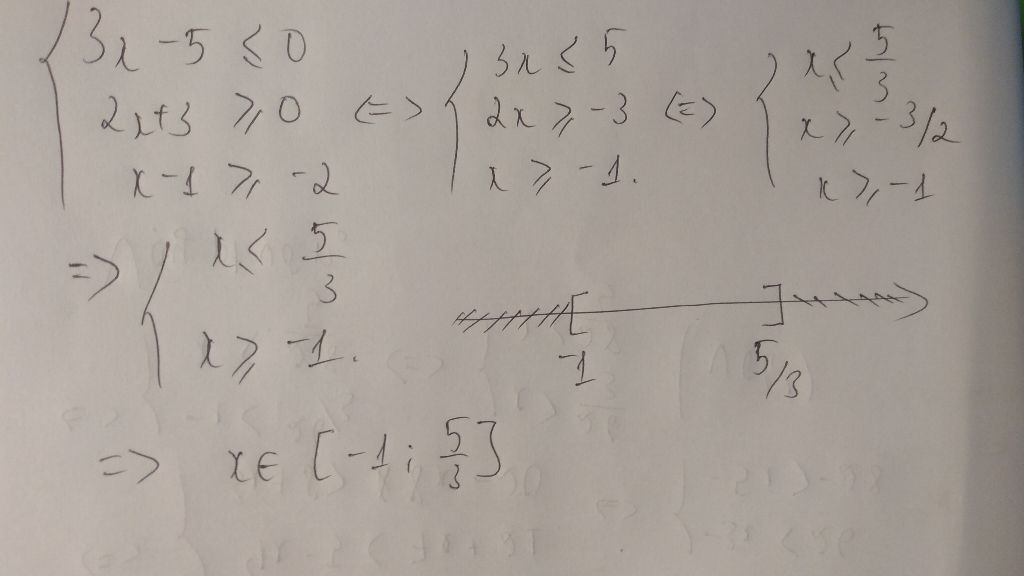 3x - 5 ≤ 0
2x+3 ≥ 0 <=>
x - 1 ≥ -2
3x ≤ 5
2x ≥ -3 <=>
x ≥ -1.
x ≤ 5/3
x ≥ -3/2
x ≥ -1
=> x ≤ 5/3
x ≥ -1.
-1 5/3
=> x∈ [-1; 5/3]